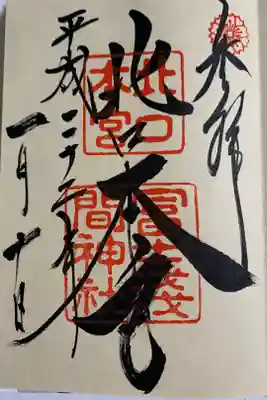 奉拝
北口本宮
平成二十年
一月十日
北口
本宮
冨士浅
間神社